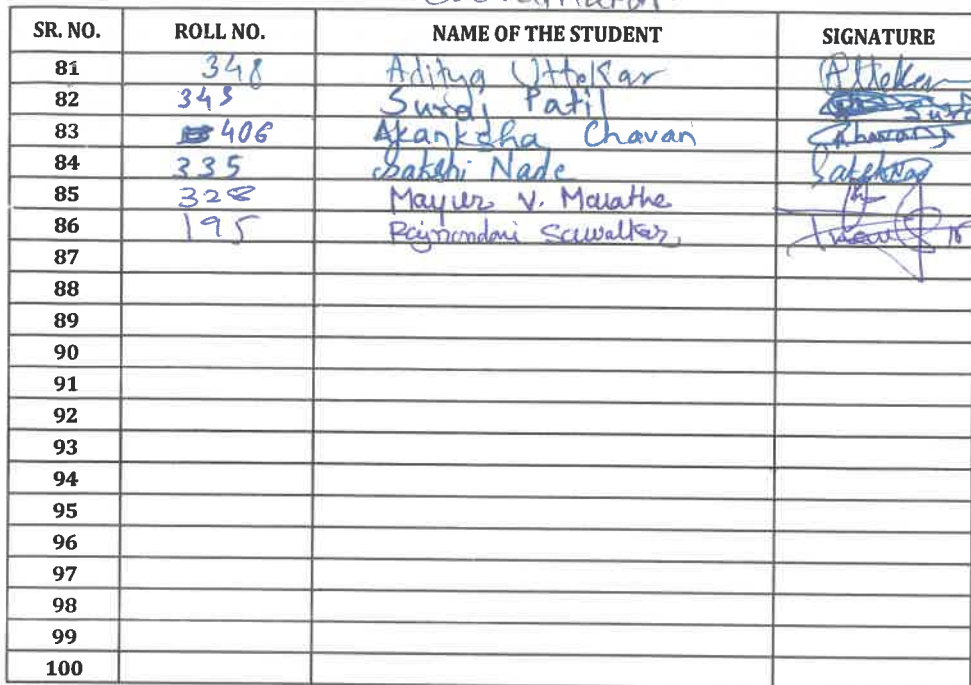 SR. NO. ROLL NO. NAME OF THE STUDENT SIGNATURE
81 348 Aditya Uttekar
82 343 Suraj Patil
83 406 Akanksha Chavan Chavan
84 335 Sakshi Nade
85 328 Mayur V. Marathe
86 195 Rajnandani Sawalkar
87
88
89
90
91
92
93
94
95
96
97
98
99
100